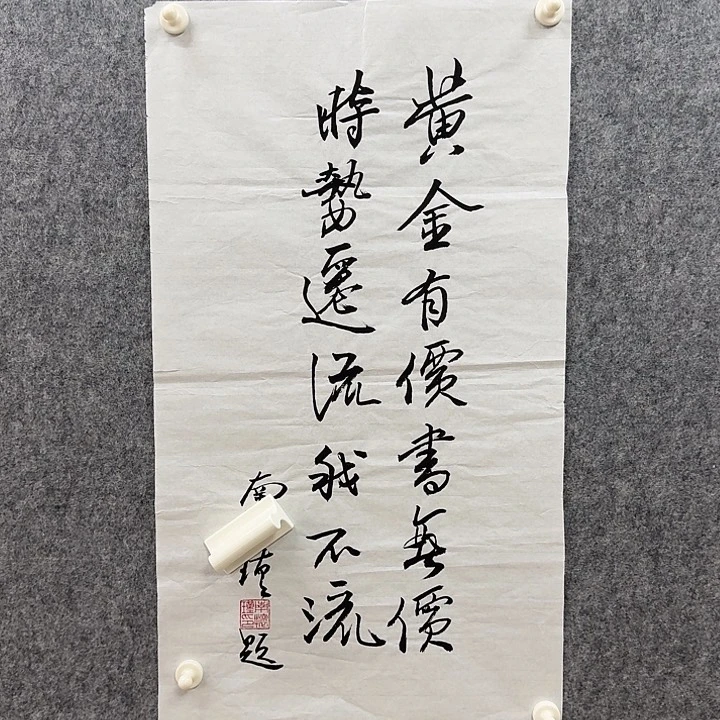 黃金有價書無價
時勢遷流我不流
南
瑾
題